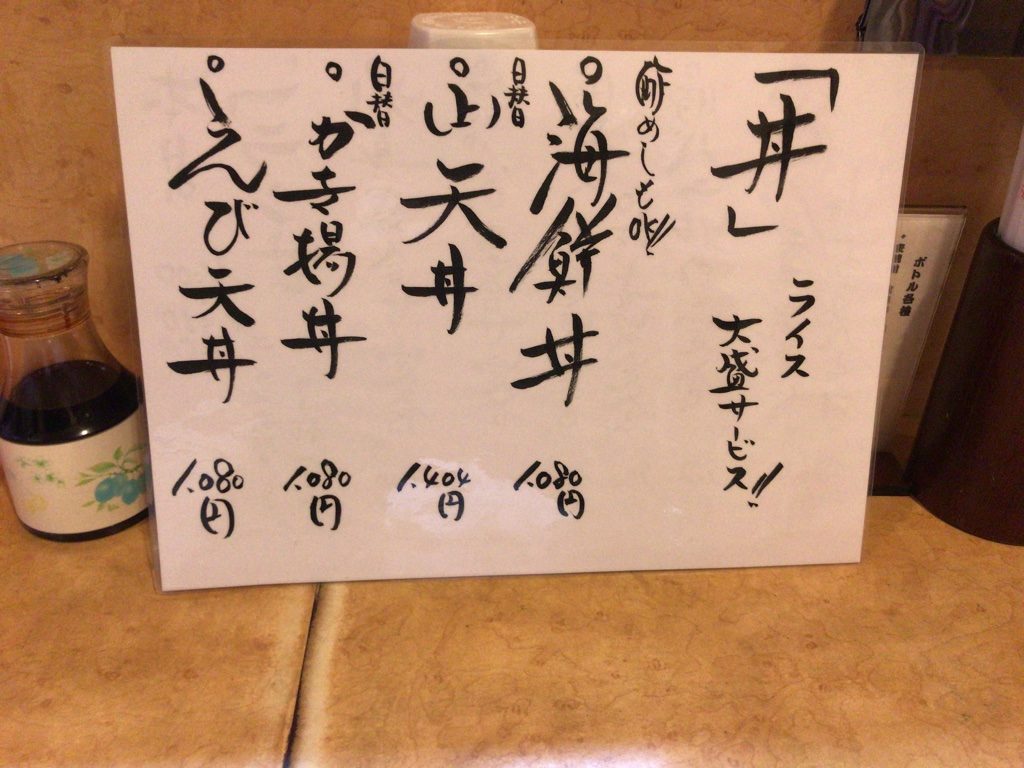 「丼」
ライス
大盛サービス!!
酢めしも可!!
日替
海鮮丼
1.080円
日替
(上)天丼
1.404円
かき揚丼
1.080円
えび天丼
1.080円
ボトル各種